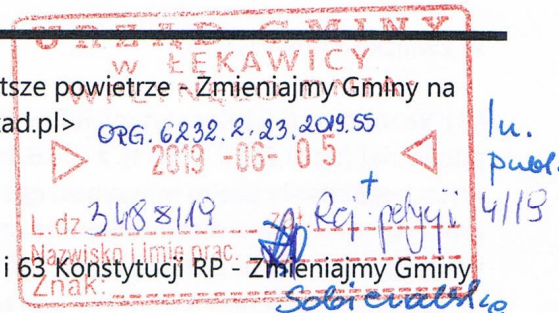 URZĄD GMINY
w ŁĘKAWICY
WPŁYNĘŁO DNIA:
tsze powietrze - Zmieniajmy Gminy na
ad.pl>
ORG. 6232.2.23.2019.SS
2019 -06- 05
L.dz. 3488/19 zał. + Rej. petycji 4/19
Nazwisko i imię prac.
i 63 Konstytucji RP - Zmieniajmy Gminy
Znak: